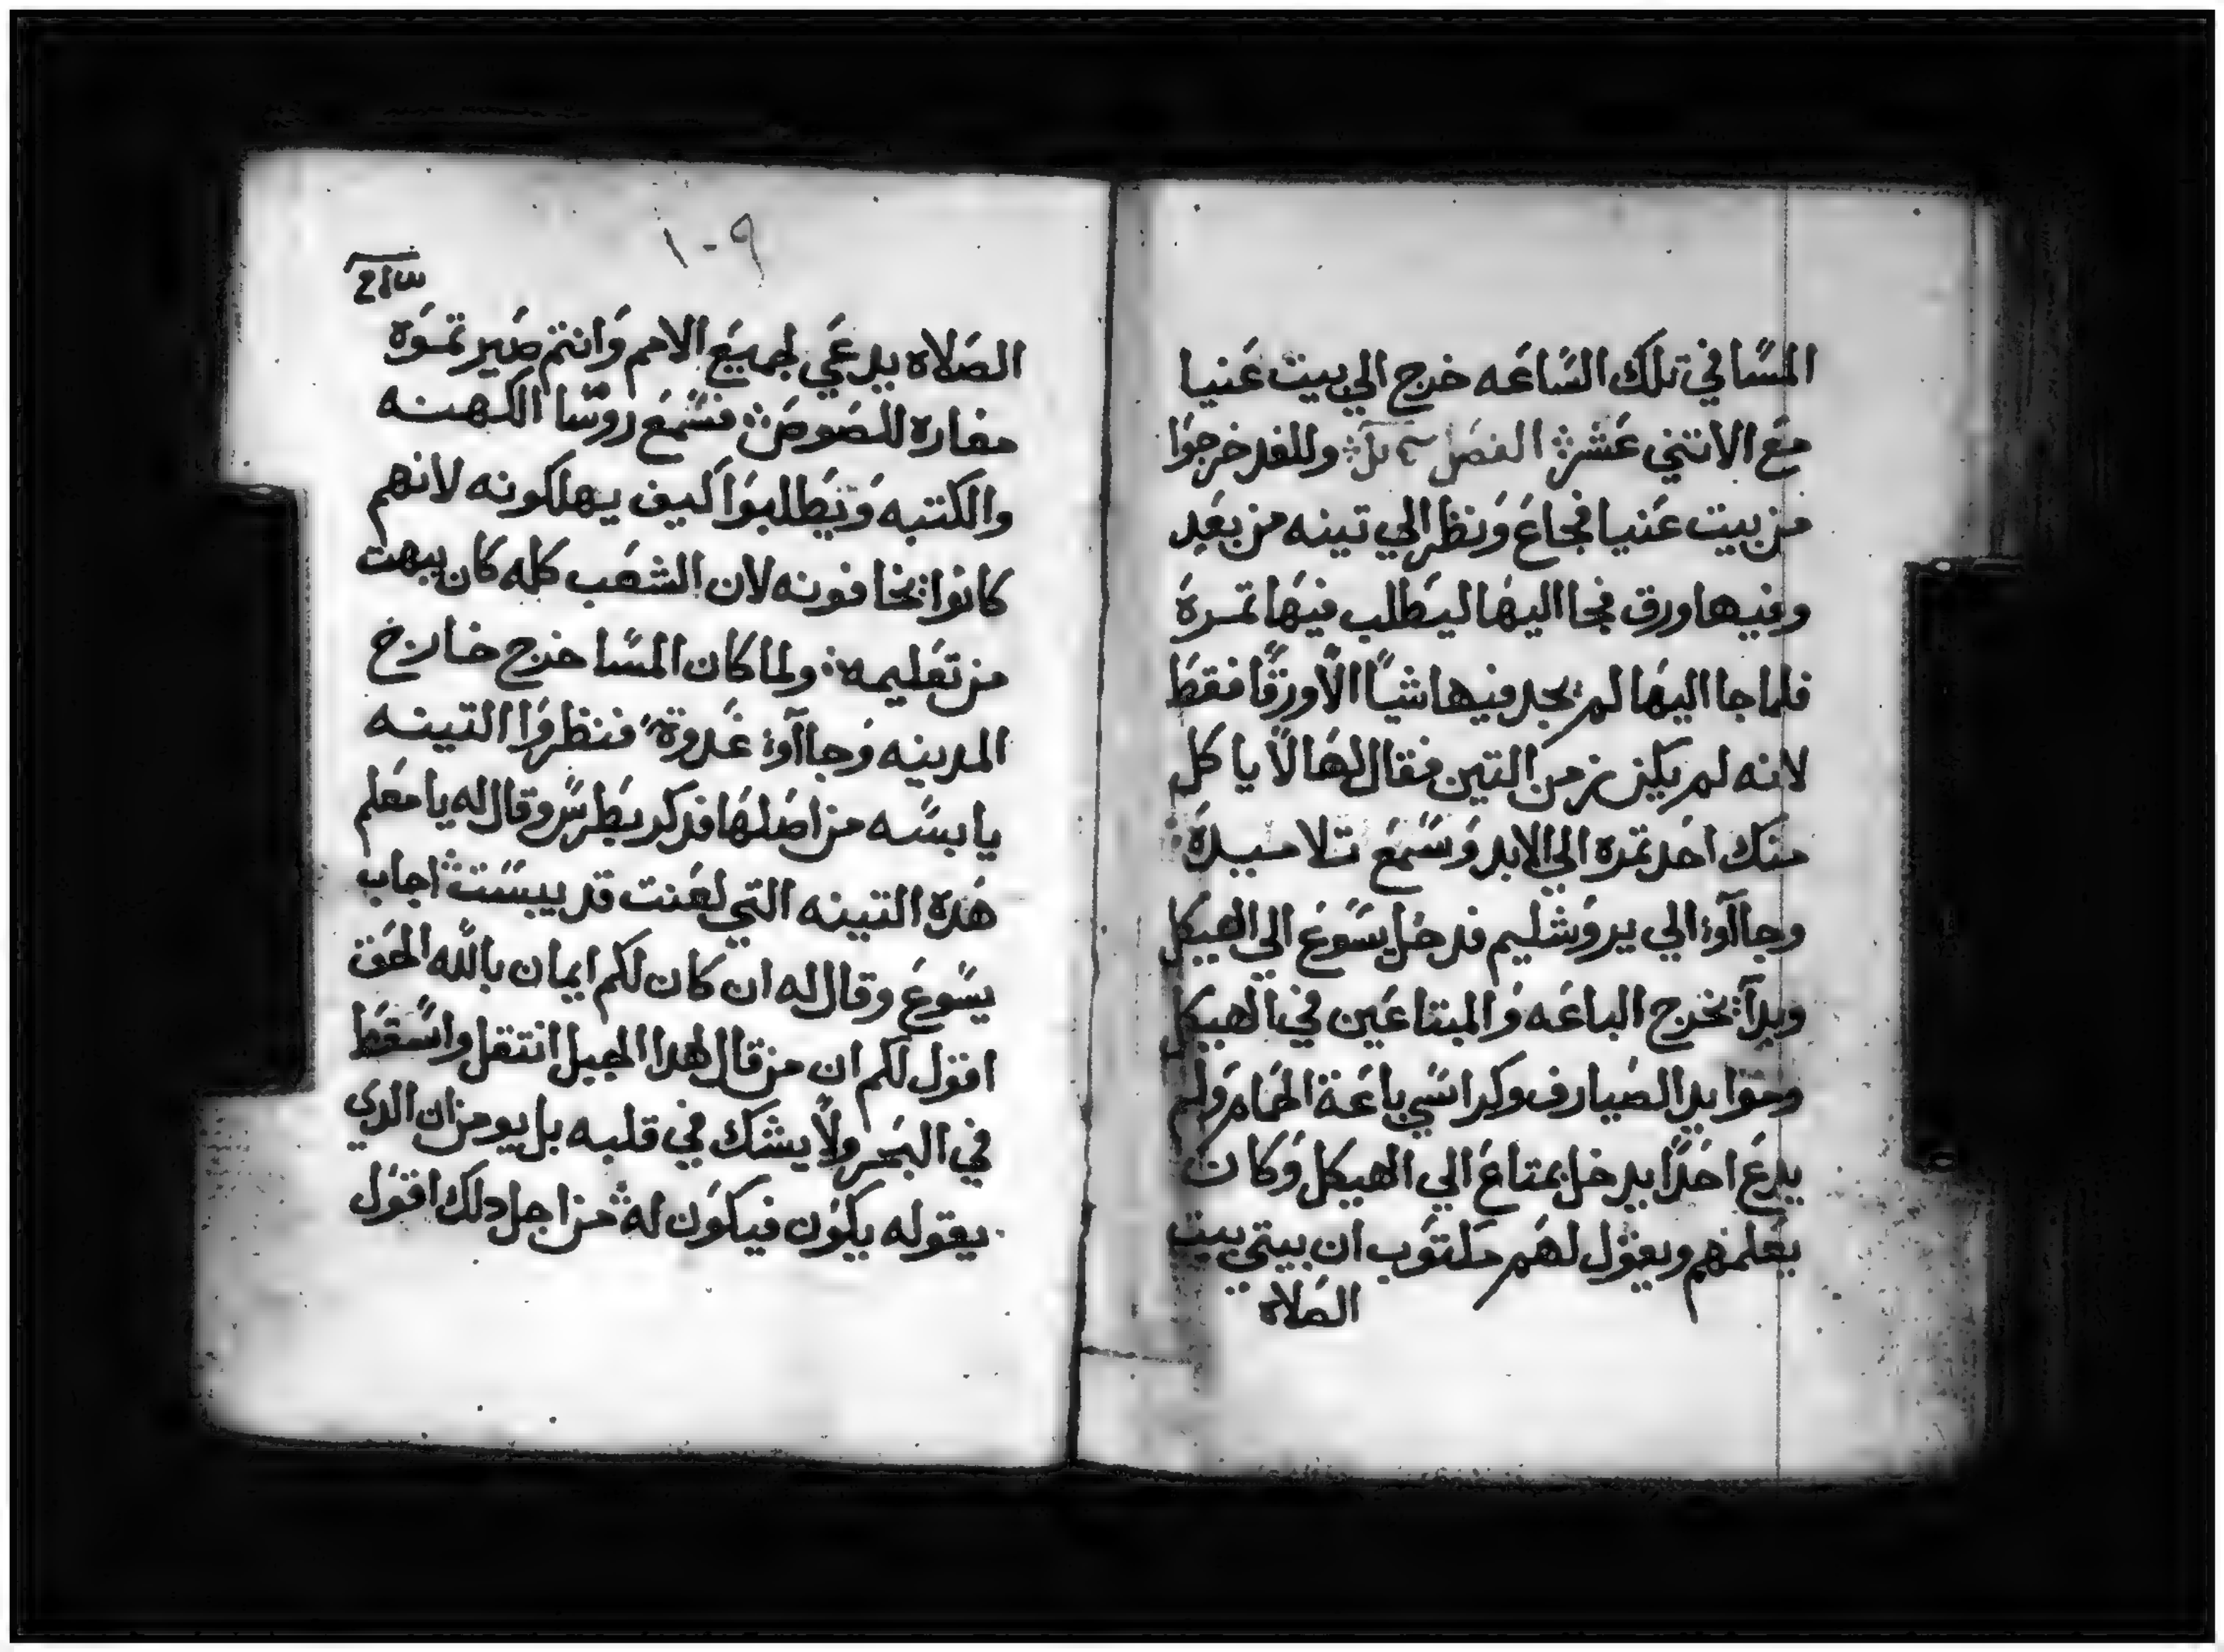 المسا في تلك الساعه خرج الي بيت عنيا
مع الاتني عشر الفصل وللغد خرجوا
من بيت عنيا فجاع ونظر الي تينه من بعد
وفيها ورق فجا اليها ليطلب فيها تمرة
فلما جا اليها لم يجد فيها شياً الا ورقاً فقط
لانه لم يكن زمن التين فقال لها لا ياكل
منك احد تمره الي الابد وسمع تلاميدة
وجاآوا الي يروشليم فدخل يسوع الي الهيكل
وبدآ يخرج الباعه والمبتاعين في الهيكل
وموايد الصيارف وكراسي باعة الحمام ولم
يدع احداً يدخل بمتاع الي الهيكل وكان
يعلمهم ويقول لهم مكتوب ان بيتي بيت
الصلاه
١٠٩
الصلاه يدعي لجميع الامم وانتم صيرتموه
مغارة للصوص فسمع روسا الكهنه
والكتبه وتطلبوا كيف يهلكونه لانهم
كانوا يخافونه لان الشعب كله كان يبهت
من تعليمه ولما كان المسا خرج خارج
المدينه وجاآوا غدوة فنظروا التينه
يابسه من اصلها فدكر بطرس وقال له يا معلم
هده التينه التي لعنت قد يبست اجاب
يسوع وقال له ان كان لكم ايمان بالله الحق
اقول لكم ان من قال لهدا الجبل انتقل واسقط
في البحر ولا يشك في قلبه بل يومن ان الدي
يقوله يكون فيكون له من اجل دلك اقول